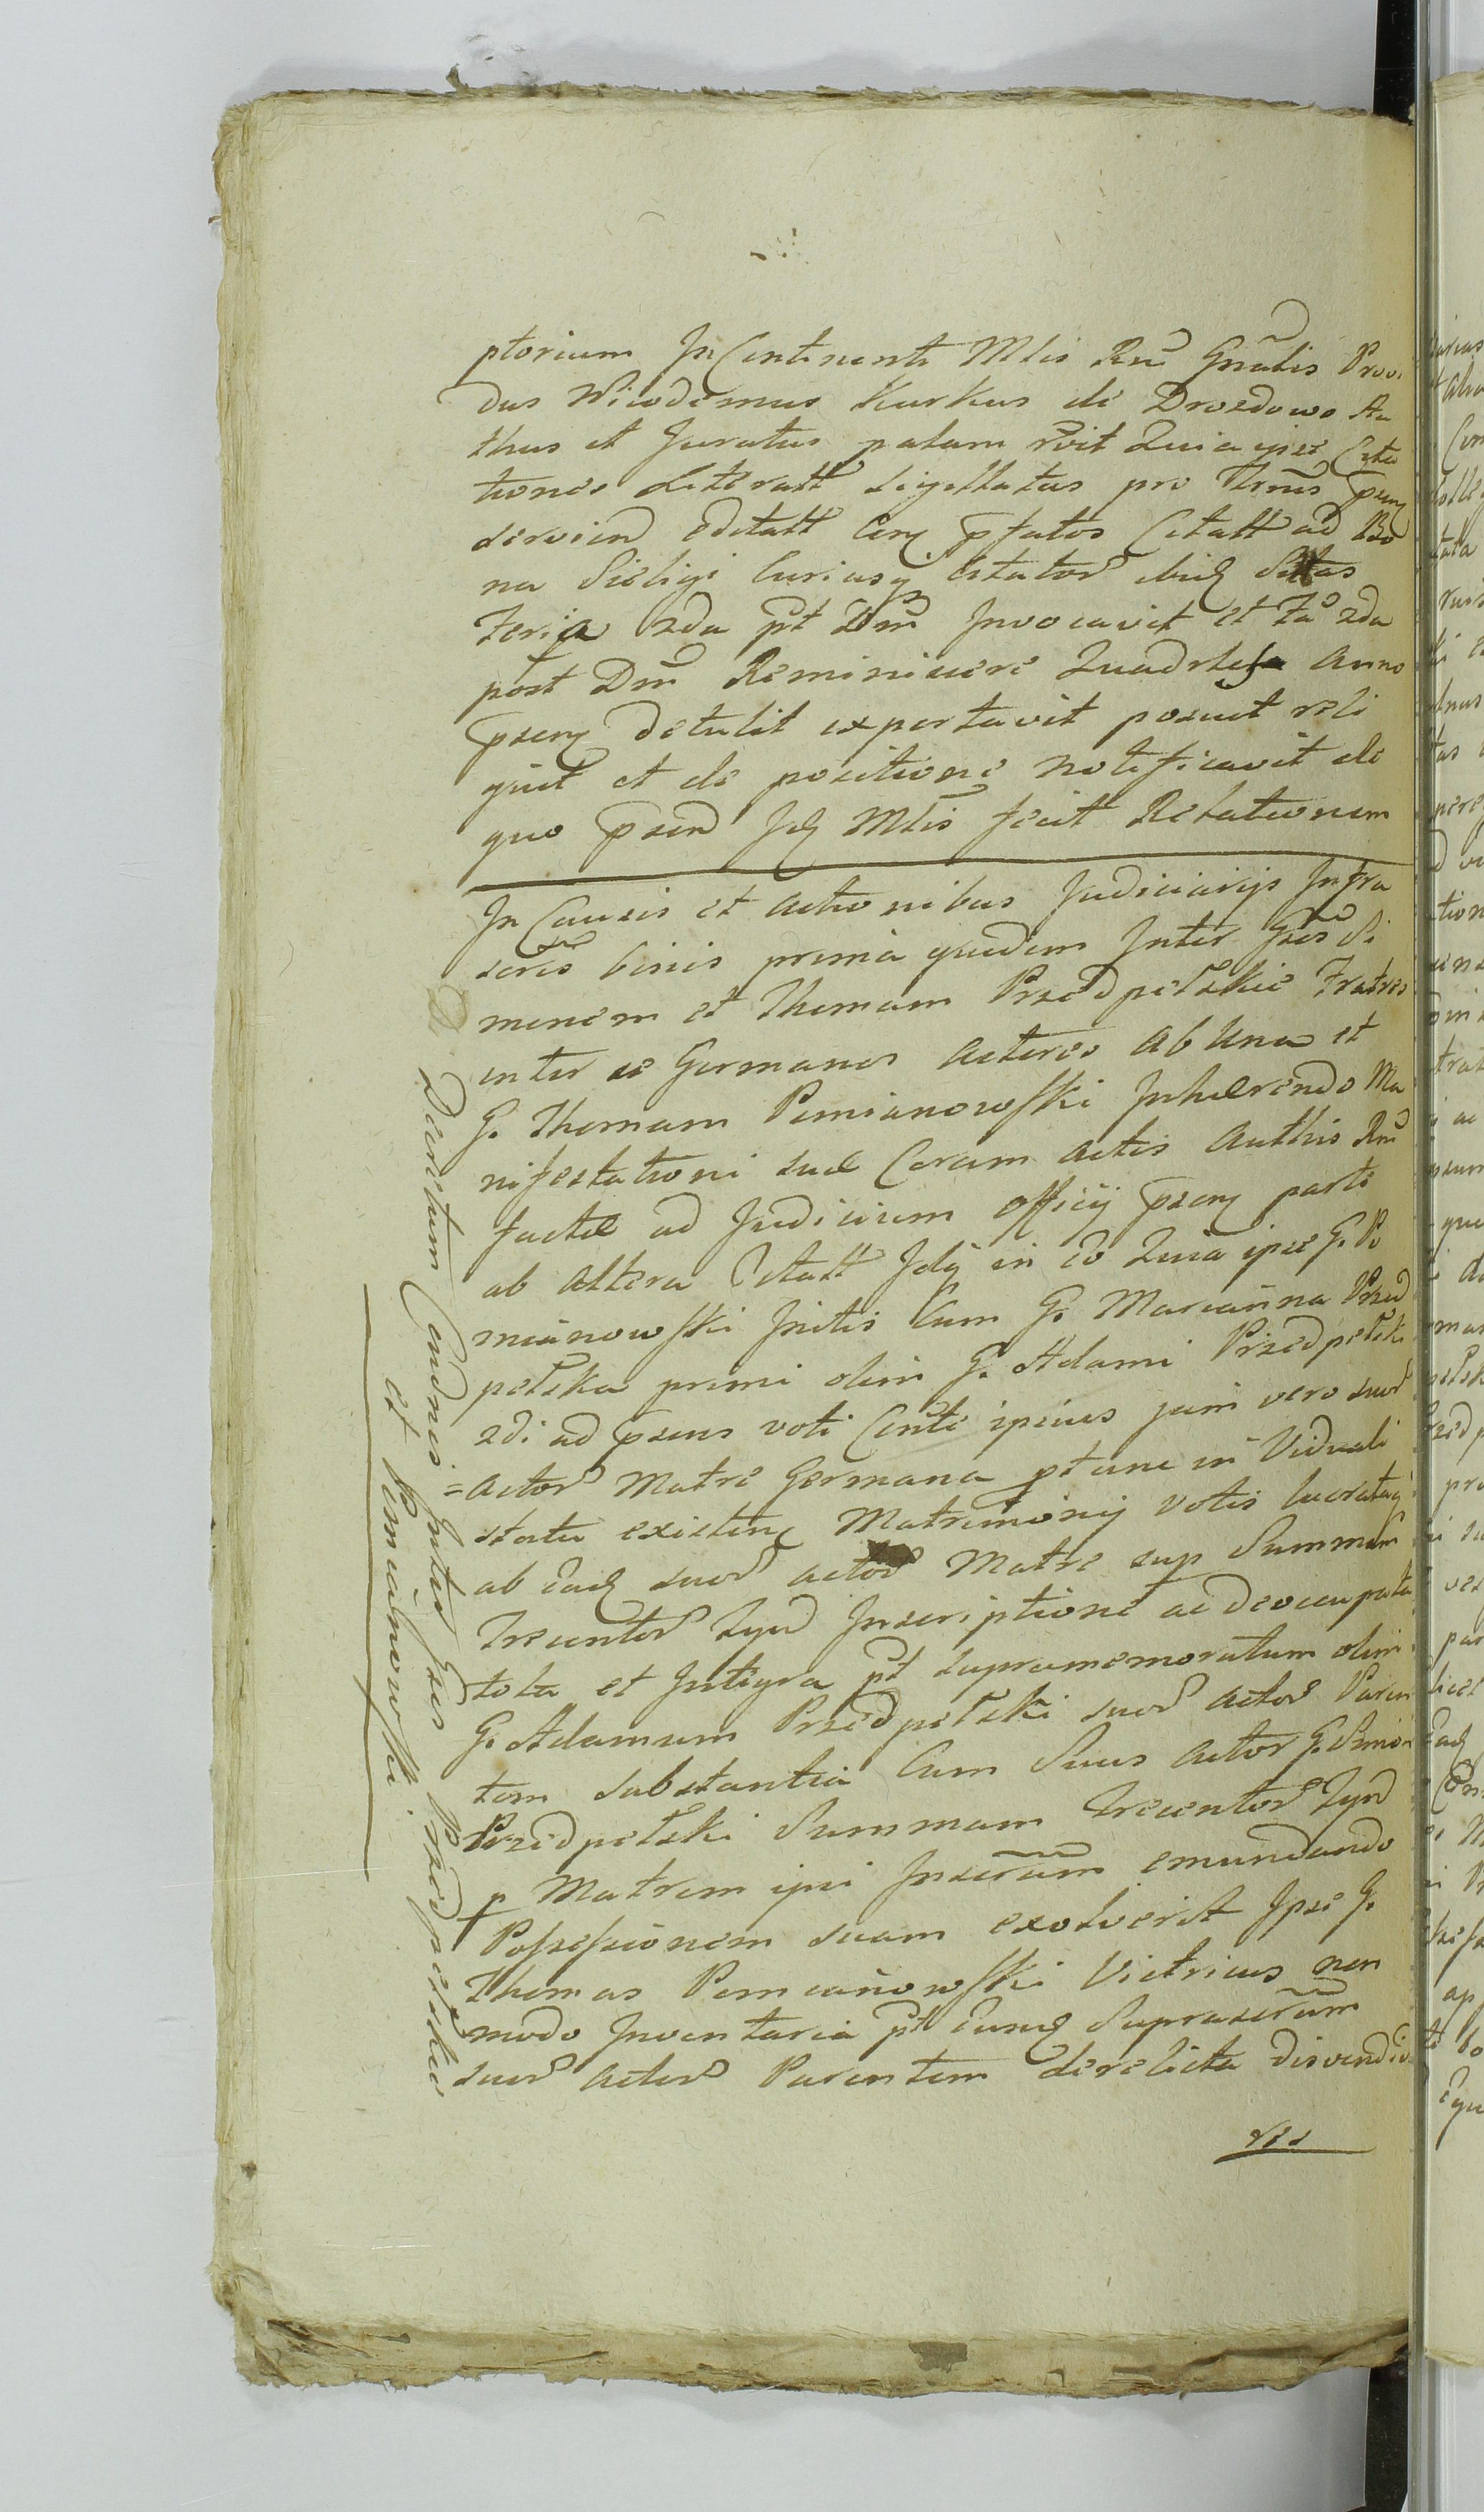 ptorium In Continenti Mlis Rni Gnalis Provi
dus Nicodemus Kurkus de Drozdowo Au
thus et Juratus palam rvit Quia ipse Cita
tiones Literatt Sigillatas pro Trnis psen
servien editatt Cerz pfatos Citatt ad Bo
na Sieligi Curiasq Citator ibid Sittas
Feria 2da pt Dm Invocavit et Fa 2da
post Dm Reminiscere Quadrlesa anno
psenz detulit exportavit posuit reli
quit et de positione notificavit de
quo psend Id Mlis fecit Relationem
In Causis et actionibus Judiciarijs Infra
scris binis prima quidem Inter Gsos Si
monem et Thomam Przedpełskie Fratres
inter se Germanos Actores ab Una et
G. Thomam Pomianowski Inhærendo Ma
nifestationi suæ Coram actis Authis Rni
factæ ad Judicium officij psenz parte
ab altera Citatt Idq in eo Quia ipse G. Po
mianowski Initis Cum G. Marianna Przed
pełska primi olim G. Adami Przedpełski
2di ad psens voti Cnte ipsius jam vero suor
=actor Matre Germana ptunc in Viduali
statu existen Matrimonij votis lucrataq
ab ead suor actor Matre sup Summam
Trecentor Tynf Inscriptione ac deoccupata
tota et Integra pt supramemoratum olim
G. Adamum Przedpełski suor actor Paren
tem substantia Cum Suus actor G. Simon
Przedpełski Summam Trecentor Tynf
p Matrem ipsi Inscram emundando
Possessionem suam exolverit Ipse G.
Thomas Pomianowski Victricus non
modo Inventaria pt eund Suprascram
suor actor Parentem derelicta disvendide
rit
Decretum Condnis Inter Gsos Przedpełskie
et Pomianowski.